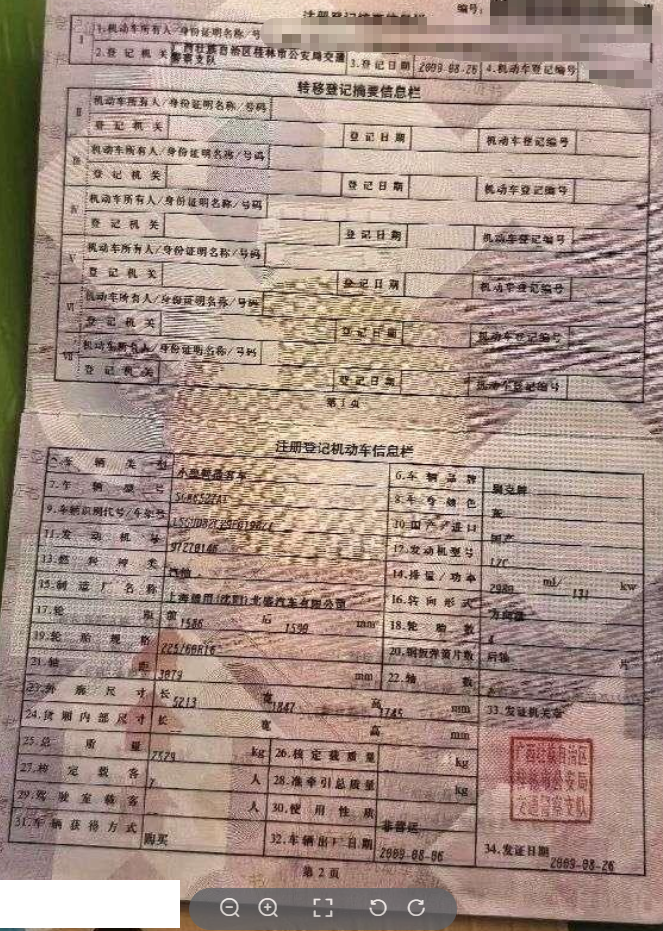 注册登记摘要信息栏
编号:
Ⅰ 1.机动车所有人/身份证明名称/号码
2.登记机关 广西壮族自治区桂林市公安局交通警察支队 3.登记日期 2009-08-26 4.机动车登记编号
转移登记摘要信息栏
Ⅱ 机动车所有人/身份证明名称/号码
登记机关 登记日期 机动车登记编号
Ⅲ 机动车所有人/身份证明名称/号码
登记机关 登记日期 机动车登记编号
Ⅳ 机动车所有人/身份证明名称/号码
登记机关 登记日期 机动车登记编号
Ⅴ 机动车所有人/身份证明名称/号码
登记机关 登记日期 机动车登记编号
Ⅵ 机动车所有人/身份证明名称/号码
登记机关 登记日期 机动车登记编号
Ⅶ 机动车所有人/身份证明名称/号码
登记机关 登记日期 机动车登记编号
第1页
注册登记机动车信息栏
5.车辆类型 小型普通客车 6.车辆品牌 别克牌
7.车辆型号 8.车身颜色 灰
9.车辆识别代号/车架号 10.国产/进口 国产
11.发动机号 12.发动机型号
13.燃料种类 汽油 14.排量/功率 ml/ kw
15.制造厂名称 上海通用(沈阳)北盛汽车有限公司 16.转向形式 方向盘
17.轮距 前 1586 后 1590 mm 18.轮胎数 4
19.轮胎规格 225/60R16 20.钢板弹簧片数 后轴 片
21.轴距 3079 mm 22.轴数 2
23.外廓尺寸 长 5213 宽 1847 高 mm 33.发证机关章
24.货厢内部尺寸 长 -- 宽 高 mm
25.总质量 2529 kg 26.核定载质量 kg
27.核定载客 7 人 28.准牵引总质量 kg
29.驾驶室载客 人 30.使用性质 非营运
31.车辆获得方式 购买 32.车辆出厂日期 2009-08-06 34.发证日期 2009-08-26
广西壮族自治区
桂林市公安局
交通警察支队
第2页